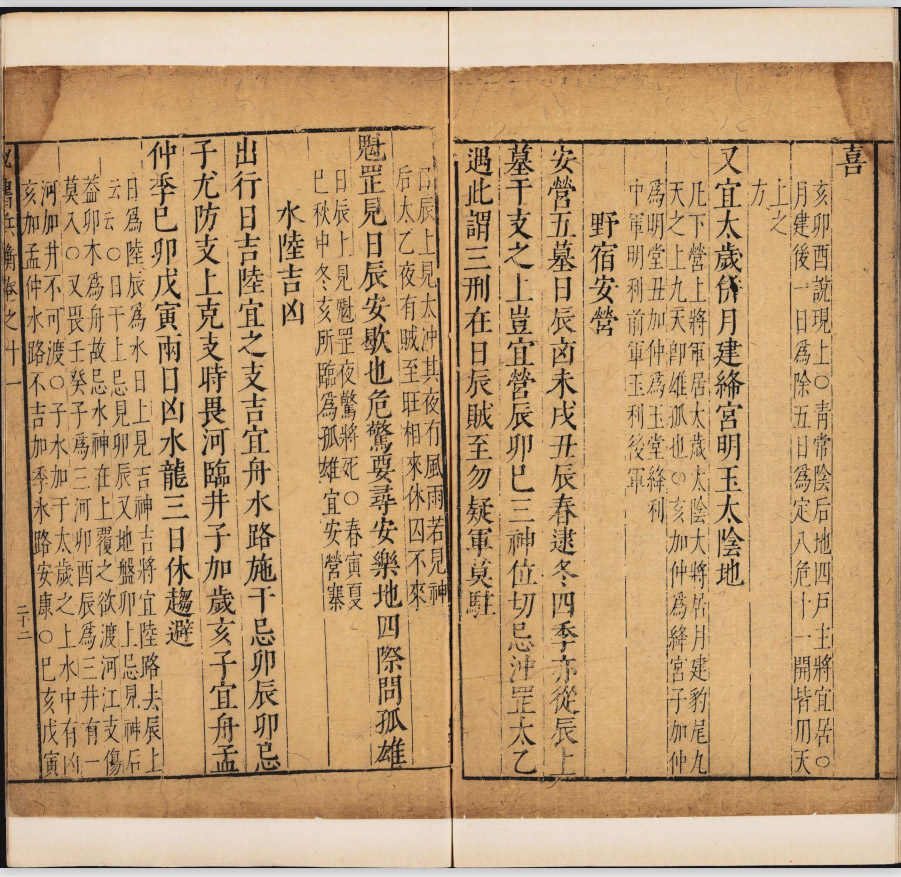 喜
亥卯酉說現上〇青常陰后地四戶主將宜居〇
月建後一日爲除五日爲定八危十一開皆用天
上之
方
又宜太歲併月建絳宮明玉太陰地
凡下營上將軍居太歲太陰大將居月建豹尾九
天之上九天卽雄孤也〇亥加仲爲絳宮子加仲
爲明堂丑加仲爲玉堂絳利
中軍明利前軍玉利後軍
野宿安營
安營五墓日辰啇未戌丑辰春逮冬四季亦從辰上
墓干支之上豈宜營辰卯巳三神位切忌沖罡太乙
遇此謂三刑在日辰賊至勿疑軍莫駐
日辰上見太冲其夜有風雨若見神
后太乙夜有賊至旺相來休囚不來
魁罡見日辰安歇也危驚要尋安樂地四際問孤雄
日辰上見魁罡夜驚將死〇春寅夏
巳秋申冬亥所臨爲孤雄宜安營寨
水陸吉凶
出行日吉陸宜之支吉宜舟水路施干忌卯辰卯忌
子尤防支上克支時畏河臨井子加歲亥子宜舟孟
仲季巳卯戊寅兩日凶水龍三日休趨避
日爲陸辰爲水日上見吉神吉將宜陸路去辰上
云云〇日干上忌見卯辰又地盤卯上忌見神后
蓋卯木爲舟故忌水神在上覆之欲渡河江支傷
莫入〇又畏壬癸子爲三河卯酉辰爲三井有一
河加井不可渡〇子水加于太歲之上水中有凶
亥加孟仲水路不吉加季水路安康〇巳亥戊寅
兵衡卷之十一
二十二